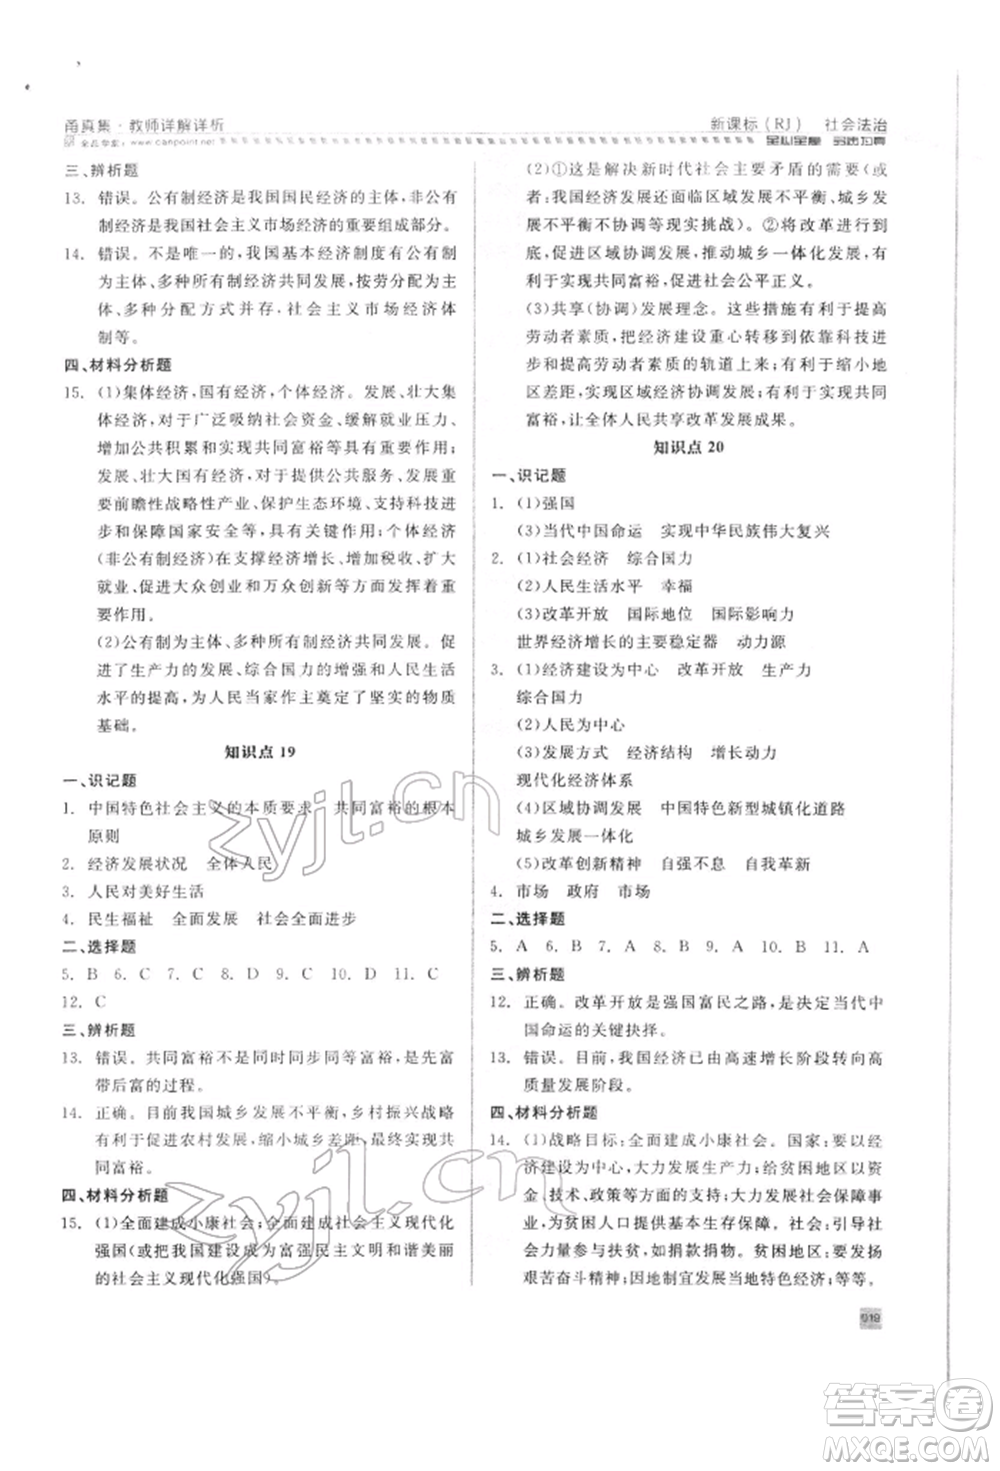 甬真集·教师详解详析
新课标(RJ) 社会法治
全品学案:www.canpoint.net
三、辨析题
13. 错误。公有制经济是我国国民经济的主体,非公有
制经济是我国社会主义市场经济的重要组成部分。
14. 错误。不是唯一的,我国基本经济制度有公有制
为主体、多种所有制经济共同发展,按劳分配为主
体、多种分配方式并存,社会主义市场经济体
制等。
四、材料分析题
15. (1)集体经济,国有经济,个体经济。发展、壮大集
体经济,对于广泛吸纳社会资金,缓解就业压力,
增加公共积累和实现共同富裕等具有重要作用;
发展、壮大国有经济,对于提供公共服务,发展重
要前瞻性战略性产业,保护生态环境、支持科技进
步和保障国家安全等,具有重要作用;个体经济
(非公有制经济)在支撑经济增长、增加税收、扩大
就业,促进大众创业和万众创新等方面具有重
要作用。
(2)公有制为主体、多种所有制经济共同发展,促
进了生产力的发展、综合国力的增强和人民生活
水平的提高,为人民当家作主奠定了坚实的物质
基础。
知识点 19
一、识记题
1. 中国特色社会主义的本质要求 共同富裕的根本
原则
2. 经济发展状况 全体人民
3. 人民对美好生活
4. 民生福祉 全面发展 社会全面进步
二、选择题
5. B 6. C 7. C 8. D 9. C 10. D 11. C
12. C
三、辨析题
13. 错误。共同富裕不是同时同步同等富裕,是先富
带后富的过程。
14. 正确。目前我国城乡发展不平衡,乡村振兴战略
有利于促进农村发展,缩小城乡差距,最终实现共
同富裕。
四、材料分析题
15. (1)全面建成小康社会;全面建成社会主义现代化
强国(或把我国建设成为富强民主文明和谐美丽
的社会主义现代化强国)。
(2)①这是解决新时代社会主要矛盾的需要(或我
国经济发展还面临区域发展不平衡、城乡发
展不平衡不协调等现实挑战)。②为将改革进行到
底,促进区域协调发展,推动城乡一体化发展,有
利于实现共同富裕,促进社会公平正义。
(3)共享(协调)发展理念。这些措施有利于提高
劳动者素质,把经济建设重心转移到依靠科技进
步和提高劳动者素质的轨道上来;有利于缩小地
区差距,实现区域经济协调发展;有利于实现共同
富裕,让全体人民共享改革发展成果。
知识点 20
一、识记题
1. (1)强国
(3)当代中国命运 实现中华民族伟大复兴
2. (1)社会经济 综合国力
(2)人民生活水平 幸福
(3)改革开放 国际地位 国际影响力
世界经济增长的主要稳定器 动力源
3. (1)经济建设为中心 改革开放 生产力
综合国力
(2)人民为中心
(3)发展方式 经济结构 增长动力
现代化经济体系
(4)区域协调发展 中国特色新型城镇化道路
城乡发展一体化
(5)改革创新精神 自强不息 自我革新
4. 市场 政府 市场
二、选择题
5. A 6. B 7. B 8. D 9. A 10. B 11. A
三、辨析题
12. 正确。改革开放是强国富民之路,是决定当代中
国命运的关键抉择。
13. 错误。目前,我国经济已由高速增长阶段转向高
质量发展阶段。
四、材料分析题
14. (1)战略目标:全面建成小康社会。国家:要以经
济建设为中心,大力发展生产力;给贫困地区以资
金、技术、政策等方面的支持;大力发展社会保障事
业,为贫困人口提供基本生存保障。社会:引导社会
力量参与扶贫,如捐款捐物。贫困地区:要发扬
艰苦奋斗精神;因地制宜发展当地特色经济;等等。
019
zyjl.cn
zyjl.cn
答案卷
MXQE.COM